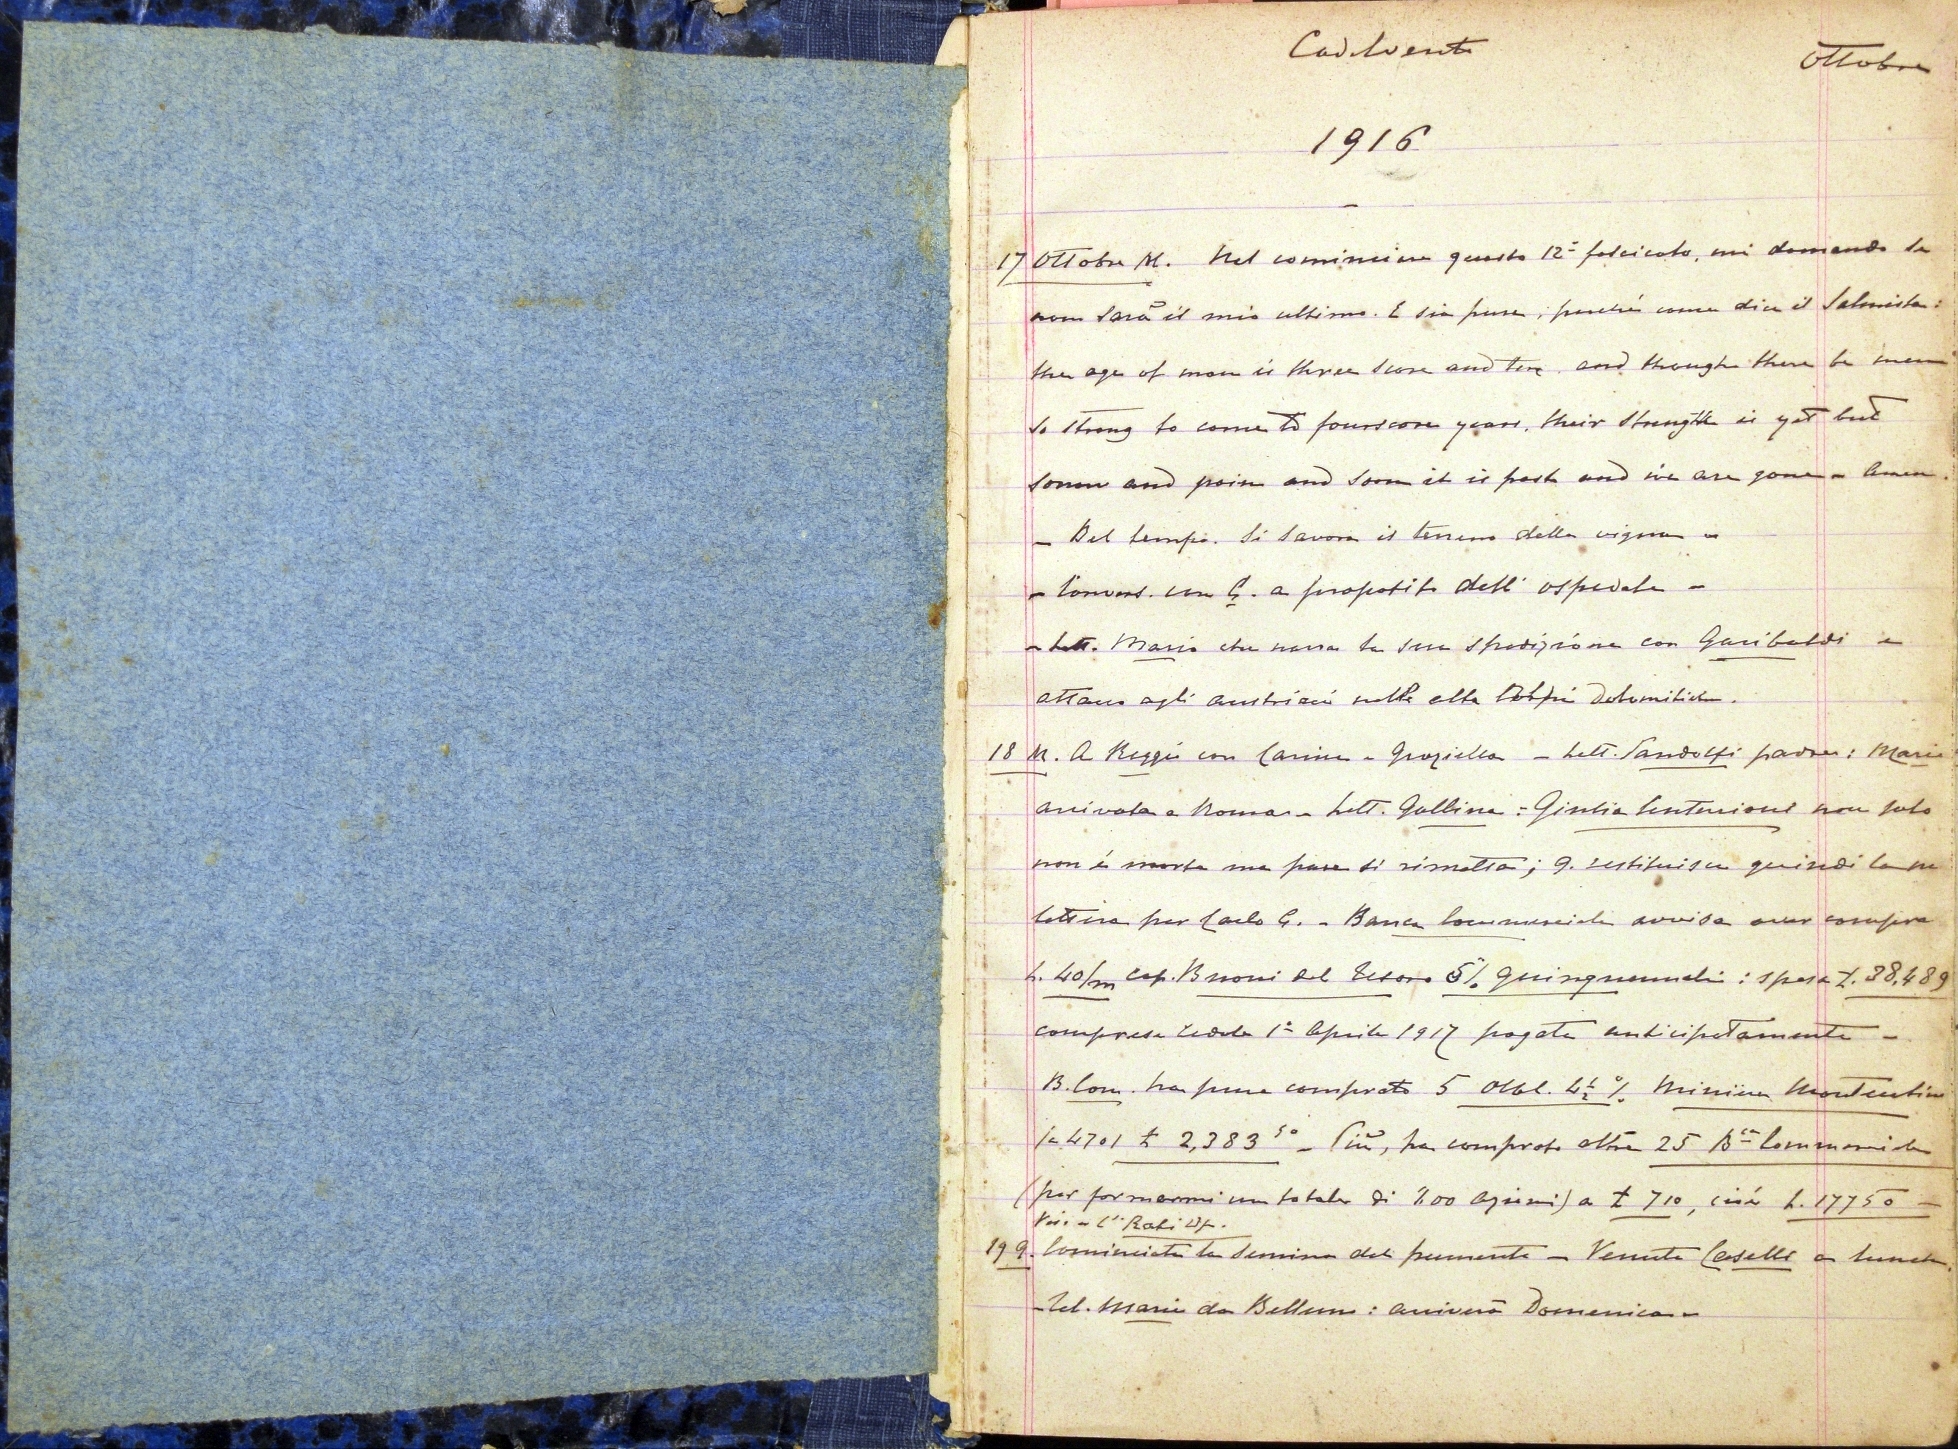 Cadelvento Ottobre
1916
17 Ottobre M. Nel cominciare questo 12º fascicolo, mi domando se
non sarà il mio ultimo. E sia pure, perchè come dice il Salmista:
the age of man is three score and ten and though there be men
so strong to come to fourscore years, their strength is yet but
sorrow and pain and soon it is past and we are gone - Amen.
- Bel tempo. Si lavora il terreno della vigna -
- Convers. con G. a proposito dell'ospedale -
- Lett. Mario che narra la sua spedizione con Garibaldi e
attacco agli austriaci nelle alte Dolomitiche.
18 M. A Reggio con Carina e Graziella - Lett. Landolfi padre: Mario
arrivato a Roma - Lett. Gallina: Giulia non solo
non è morta ma pare si rimetta; G. restituisce quindi la
lettera per Carlo G. - Banca Commerciale avvisa aver compra
L. 40/m cap. Buoni del Tesoro 5% quinquennali: spesa £. 38,489
compresa cedola 1º Aprile 1917 pagata anticipatamente -
B. Com. ha pure comprato 5 Obbl. 4½ % Miniere Montecatini
a 470 £ 2,383 50 - Più, ha comprato altre 25 Bca Commerciale
(per formarmi un totale di 200 azioni) a £ 710, cioè L. 17750 -
19 G. Cominciata la semina del frumento - Venuta Caselli a lunch.
- Tel. Mario da Belluno: arriverà Domenica -